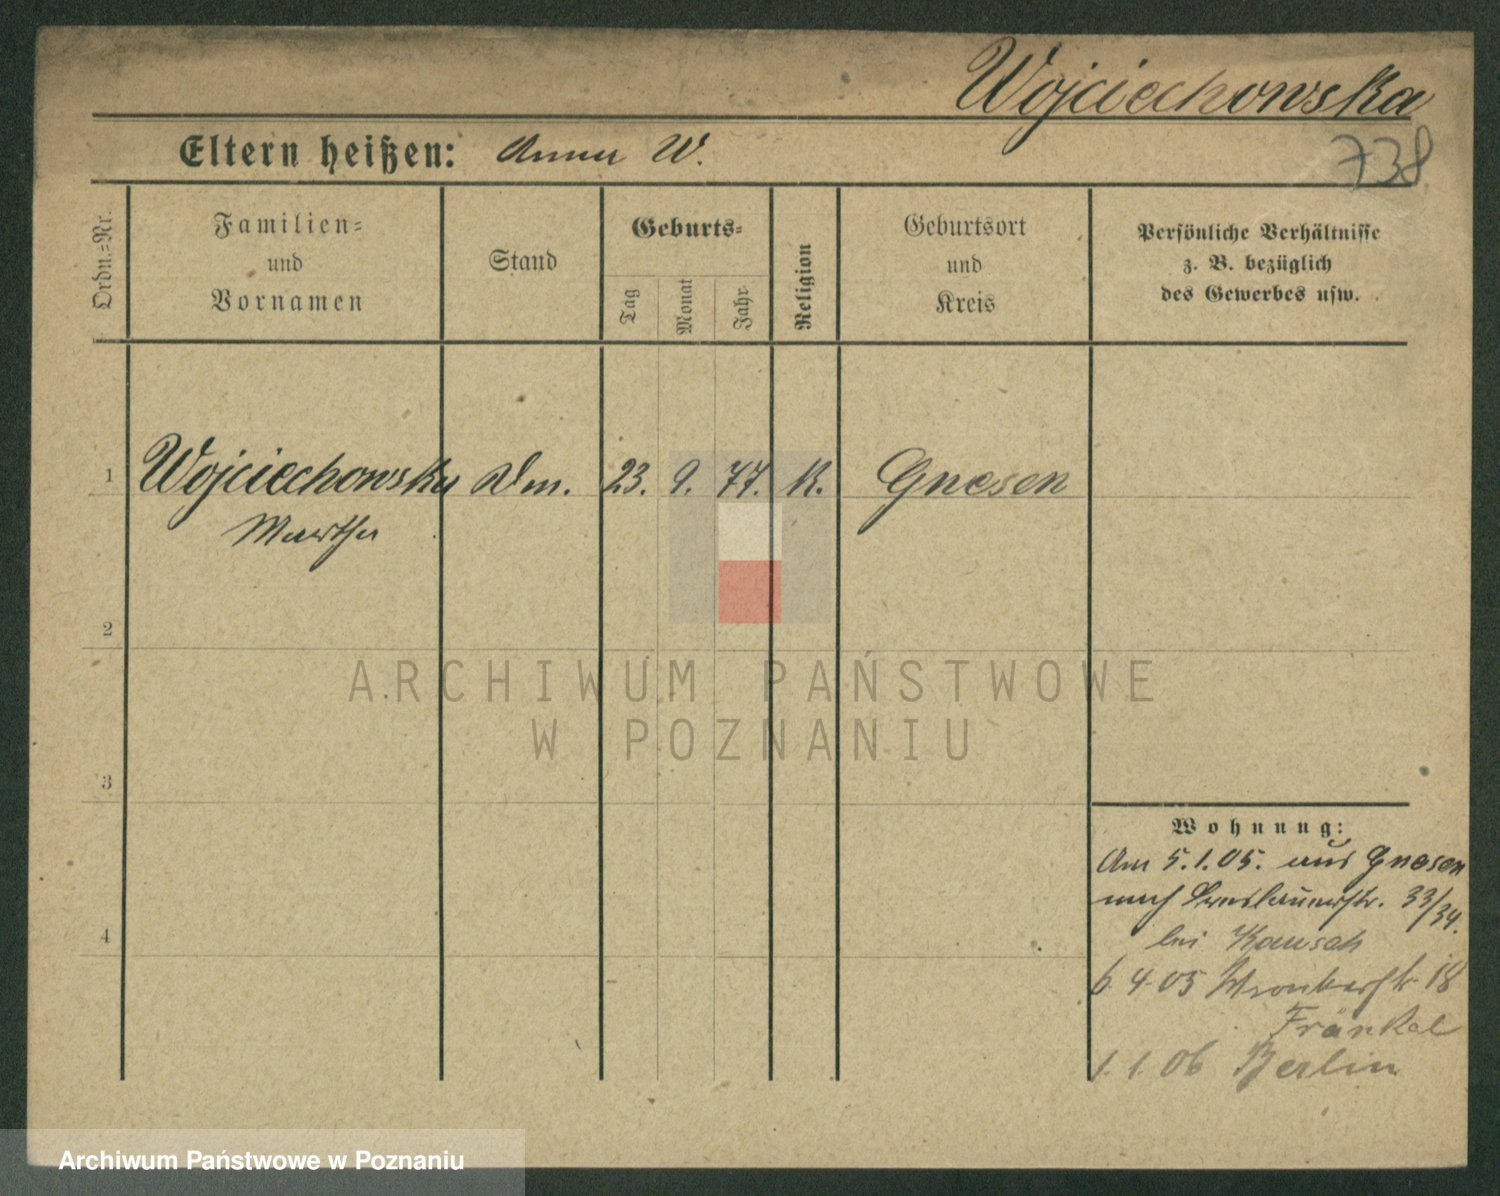 Wojciechowska
738
Eltern heißen: Anna W.
Ordn.-Nr.
Familien-
und
Vornamen
Stand
Geburts-
Tag
Monat
Jahr
Religion
Geburtsort
und
Kreis
Persönliche Verhältnisse
z. B. bezüglich
des Gewerbes usw.
1 Wojciechowska 23. 9. 77. K. Gnesen
Martha
2
3
4
ARCHIWUM PAŃSTWOWE
W POZNANIU
Wohnung:
Am 5.1.05. aus Gnesen
nach Breslauerstr. 33/34.
bei Kausch
6 4 05 Wronkerstr 18
Fränkel
1. 1. 06 Berlin
Archiwum Państwowe w Poznaniu